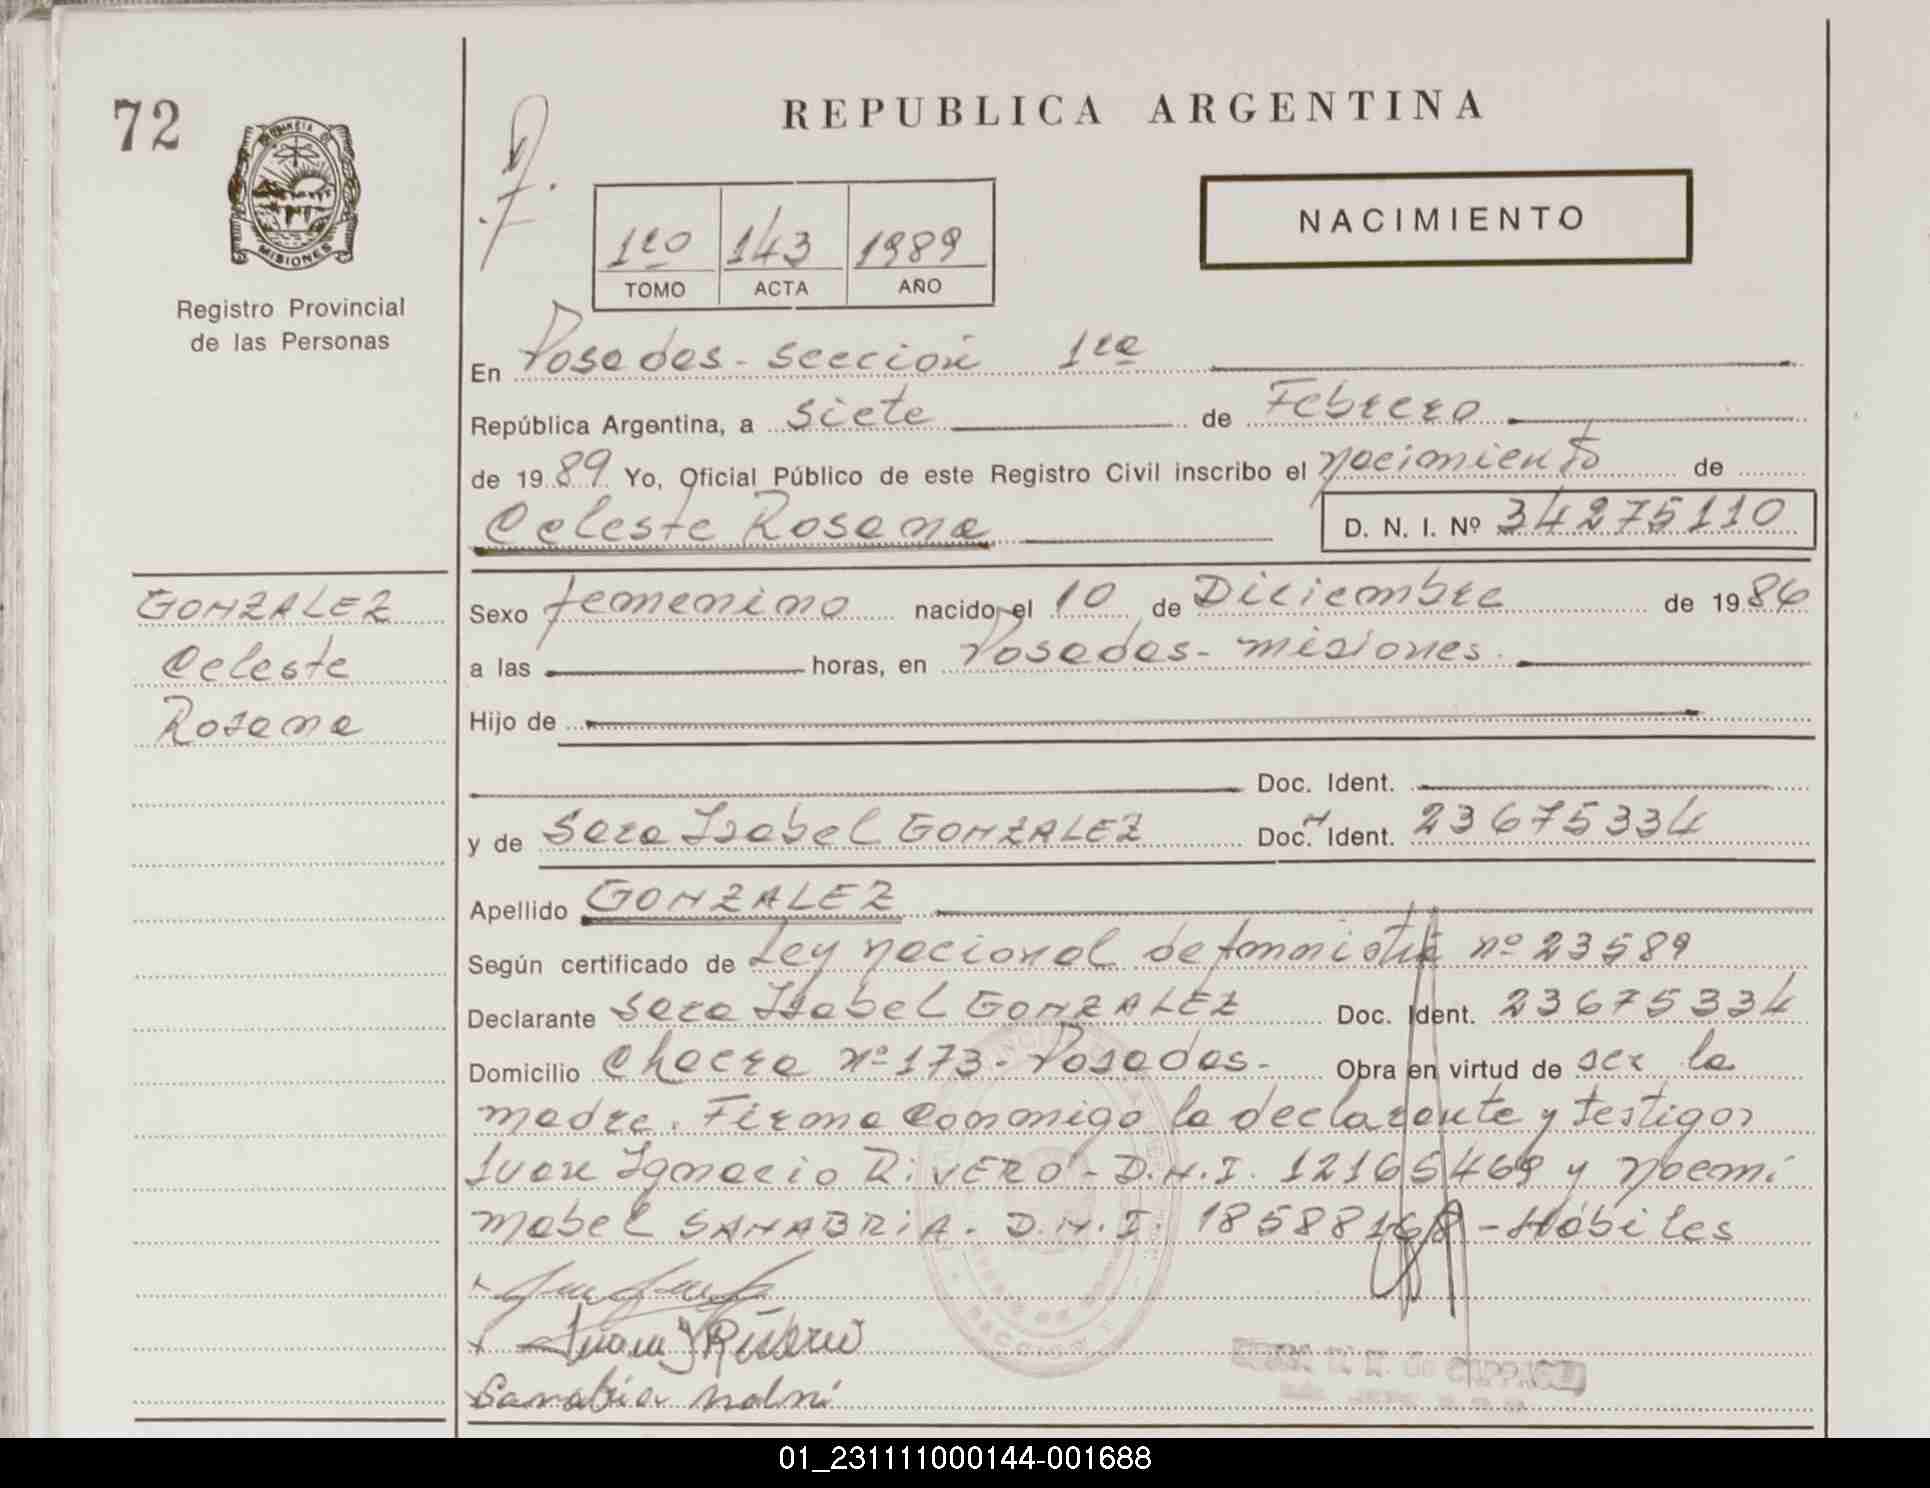 72
REPUBLICA ARGENTINA
MISIONES
Registro Provincial
de las Personas
1ro 143 1989
TOMO ACTA AÑO
NACIMIENTO
En Posadas - sección 1ra
República Argentina, a siete de Febrero
de 1989 Yo, Oficial Público de este Registro Civil inscribo el nacimiento de
Celeste Rosana D. N. I. Nº 34275110
GONZALEZ
Celeste
Rosana
Sexo femenino nacido el 10 de Diciembre de 1986
a las horas, en Posadas - misiones.
Hijo de
Doc. Ident.
y de Sara Isabel GONZALEZ Doc. Ident. 23675334
Apellido GONZALEZ
Según certificado de Ley nacional de Amnistía nº 23589
Declarante Sara Isabel GONZALEZ Doc. Ident. 23675334
Domicilio Chacra nº 173 - Posadas - Obra en virtud de ser la
madre. Firma conmigo la declarante y testigos
Juan Ignacio RiVERO - D.N.I. 12165469 y Noemi
mabel SANABRiA - D.N.I. 18588168 - Hábiles
Juan J Rivero
Sanabria
01_231111000144-001688